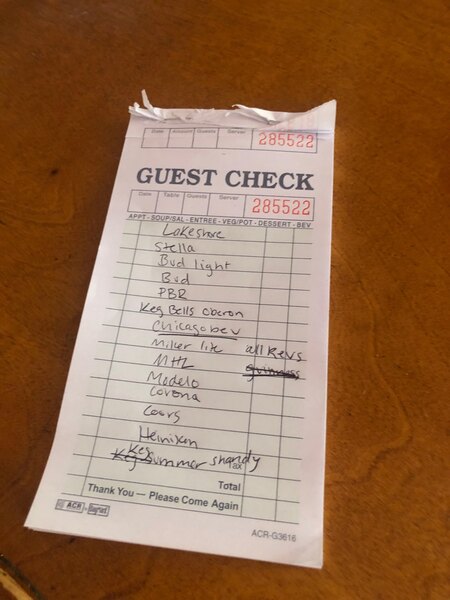 Date Amount Guests Server 285522
GUEST CHECK
Date Table Guests Server 285522
APPT - SOUP/SAL - ENTREE - VEG/POT - DESSERT - BEV
Lakeshore
Stella
Bud light
Bud
PBR
Keg Bells oberon
Chicago bev
Miller lite all Revs
MHL
Modelo
Corona
Coors
Heiniken
Keg summer shandy
Tax
Total
Thank You — Please Come Again
ACR
ACR-G3616